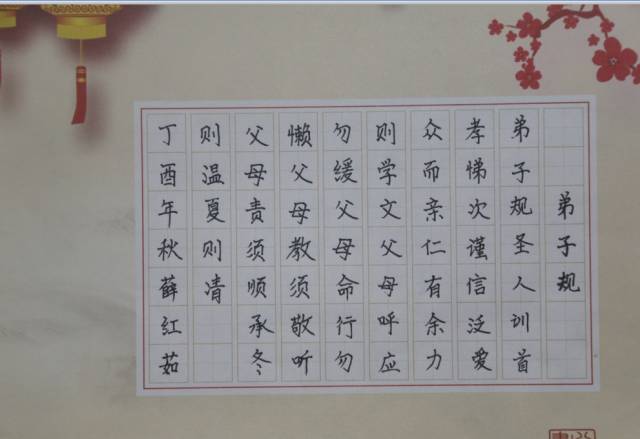 弟子规
弟子规圣人训首
孝悌次谨信泛爱
众而亲仁有余力
则学文父母呼应
勿缓父母命行勿
懒父母教须敬听
父母责须顺承冬
则温夏则凊
丁酉年秋薛红茹